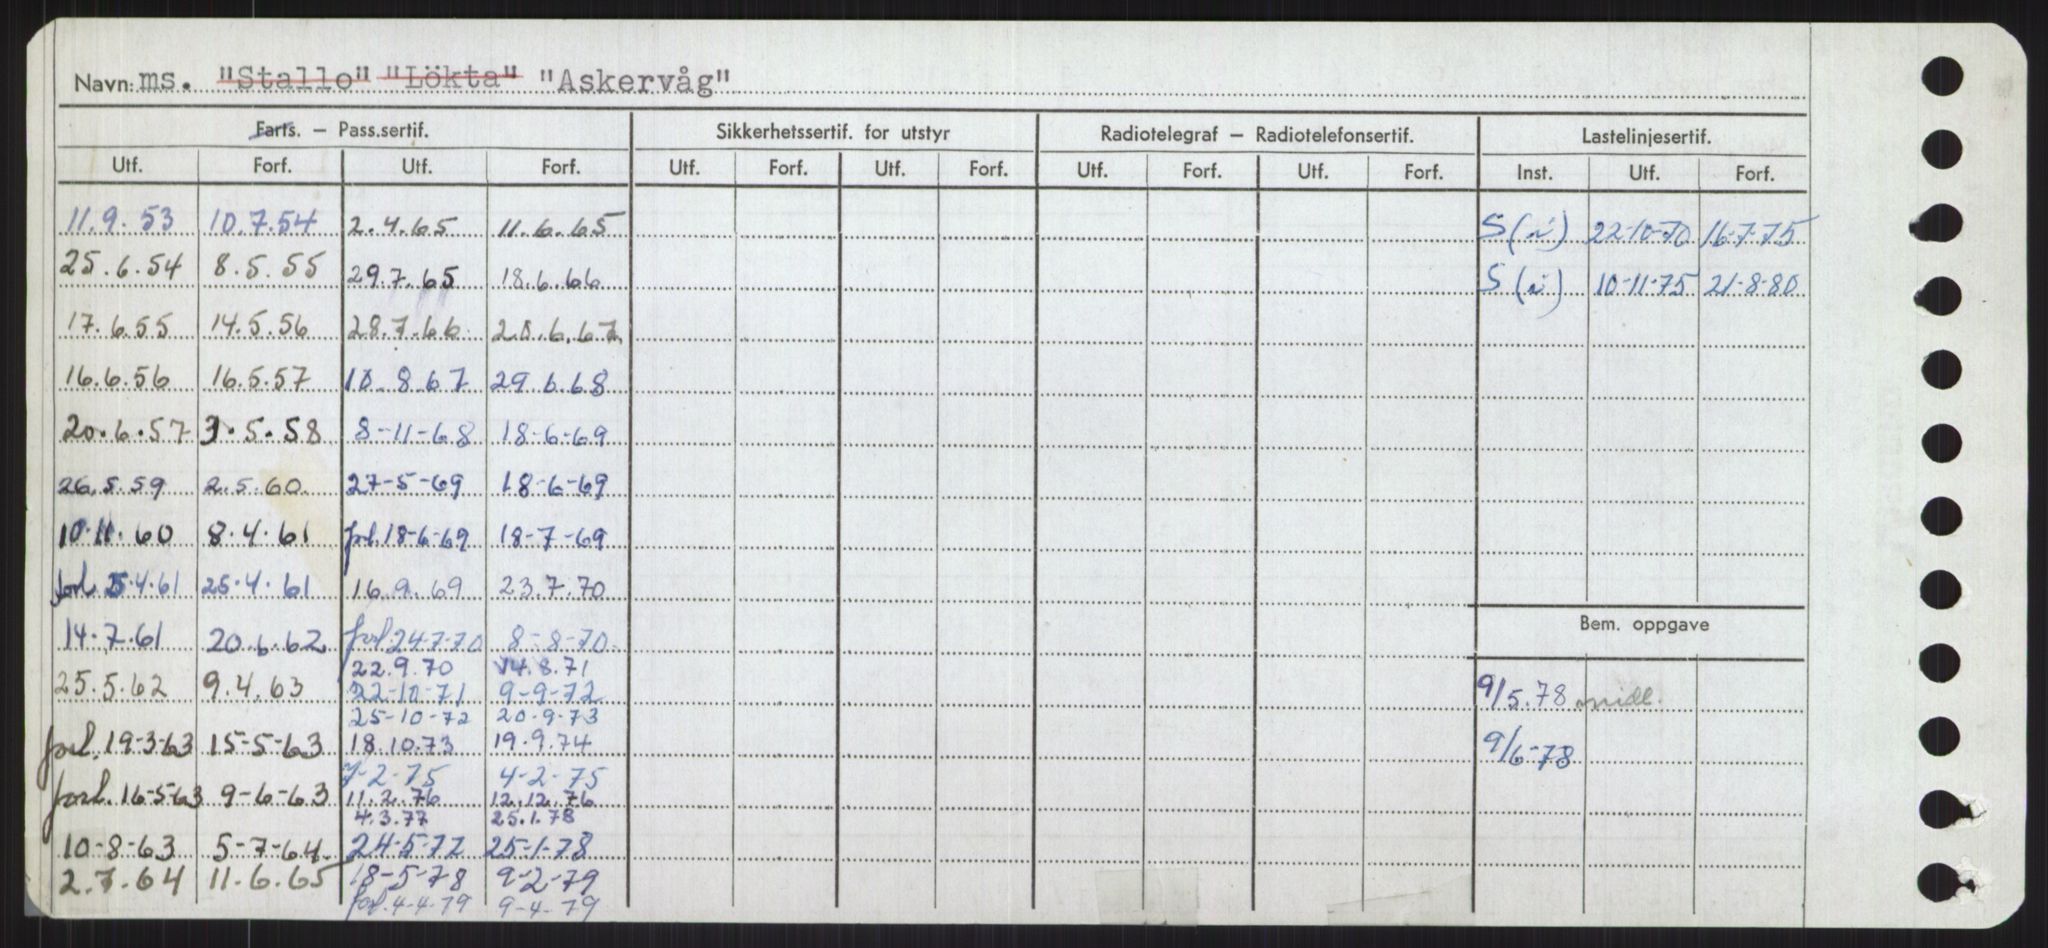 Navn: ms. "Stallo" "Lökta" "Askervåg"
Farts. — Pass.sertif. Sikkerhetssertif. for utstyr Radiotelegraf — Radiotelefonsertif. Lastelinjesertif.
Utf. Forf. Utf. Forf. Utf. Forf. Utf. Forf. Utf. Forf. Utf. Forf. Inst. Utf. Forf.
11.9.53 10.7.54 2.4.65 11.6.65 S(i) 22-10-70 16-7-75
25.6.54 8.5.55 29.7.65 18.6.66 S(i) 10-11-75 21-8-80
17.6.55 14.5.56 28.7.66 20.6.67
16.6.56 16.5.57 10.8.67 29.6.68
20.6.57 3.5.58 8-11-68 18-6-69
26.5.59 2.5.60 27-5-69 18-6-69
10.11.60 8.4.61 forl. 18-6-69 18-7-69
forl. 5.4.61 25.4.61 16.9.69 23.7.70
14.7.61 20.6.62 forl. 24-7-70 8-8-70
Bem. oppgave
22.9.70 14.8.71
25.5.62 9.4.63 22-10-71 9-9-72 9/5.78 midl.
25-10-72 20-9-73
forl. 19-3-63 15-5-63 18.10.73 19.9.74 9/6-78
7-2-75 4-2-75
forl. 16-5-63 9-6-63 11.2.76 12.12.76
4.3.77 25.1.78
10-8-63 5-7-64 24-5-77 25-1-78
2.7.64 11.6.65 18-5-78 9-2-79
forl. 4-4-79 9-4-79